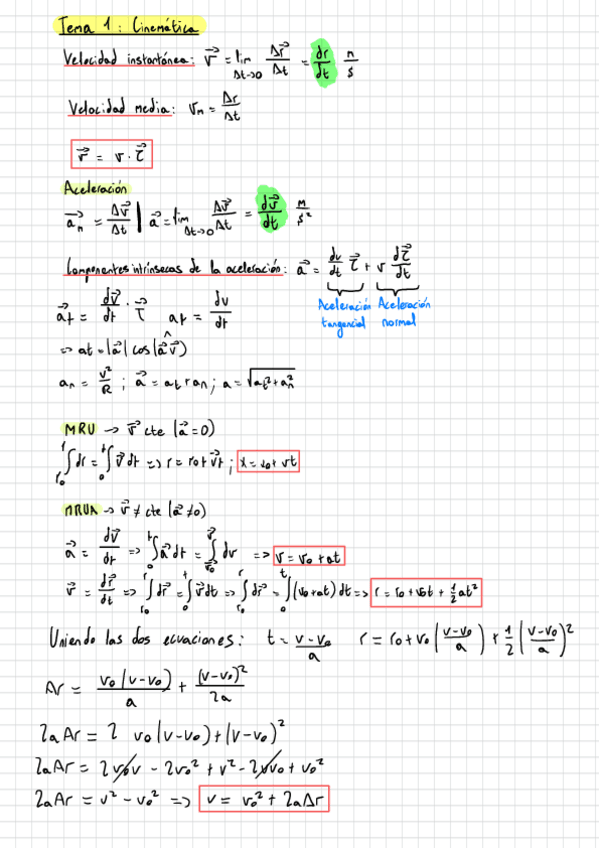 Tema 1: Cinemática
Velocidad instantánea: v⃗ = lim Δt→0 Δr⃗/Δt = dr/dt m/s
Velocidad media: vm = Δr/Δt
v⃗ = v · τ⃗
Aceleración
a⃗m = Δv⃗/Δt | a⃗ = lim Δt→0 Δv⃗/Δt = dv⃗/dt m/s²
Componentes intrínsecas de la aceleración: a⃗ = dv/dt τ⃗ + v dτ⃗/dt
Aceleración tangencial Aceleración normal
a⃗t = dv⃗/dt · τ⃗ at = dv/dt
=> at = |a⃗| cos(a⃗ v⃗)
an = v²/R ; a⃗ = at + an ; a = √(at² + an²)
MRU → v⃗ cte (a⃗ = 0)
∫r0^r dr = ∫0^t v⃗ dt => r = r0 + v⃗t ; x = x0 + vt
MRUA → v⃗ ≠ cte (a⃗ ≠ 0)
a⃗ = dv⃗/dt => ∫0^t a⃗ dt = ∫v⃗0^v⃗ dv => v = v0 + at
v⃗ = dr⃗/dt => ∫r0^r dr⃗ = ∫0^t v⃗ dt => ∫r0^r dr⃗ = ∫0^t (v0 + at) dt => r = r0 + v0t + 1/2 at²
Uniendo las dos ecuaciones: t = (v - v0)/a r = r0 + v0 ((v - v0)/a) + 1/2 ((v - v0)/a)²
Δr = v0 (v - v0)/a + (v - v0)²/2a
2aΔr = 2 v0 (v - v0) + (v - v0)²
2aΔr = 2v0v - 2v0² + v² - 2vv0 + v0²
2aΔr = v² - v0² => v = v0² + 2aΔr